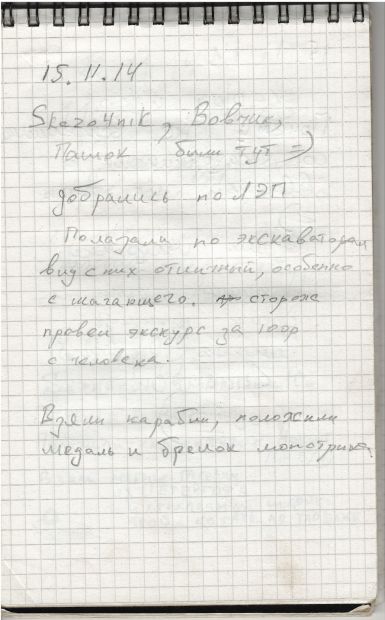 15.11.14
Skazo4nik, Вовчик,
Пашок были тут =)
добрались по ЛЭП
Полазали по экскаваторам
вид с них отличный, особенно
с шагающего. сторож
провел экскурс за 100р
с человека.
Взяли карабин, положили
медаль и брелок монстрика